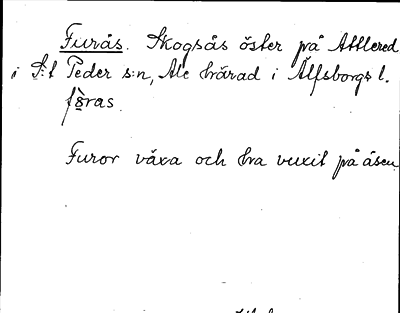 Furås. Skogsås öster på Attlered
i S:t Peder s:n, Ale härad i Älfsborgs l.
Furor växa och ha vuxit på åsen